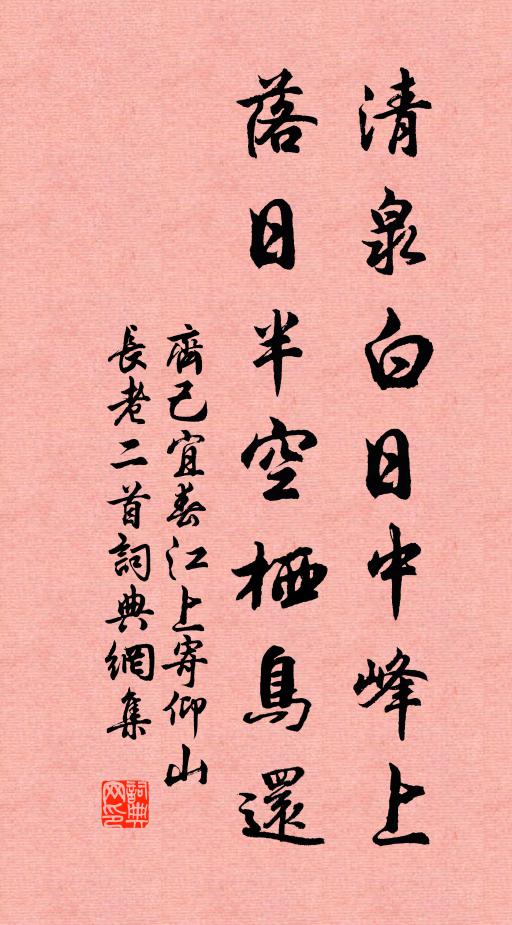 清泉白日中峰上
落日半空栖鳥還
齊己宜春江上寄仰山
長老二首詞典網集
詞典網印